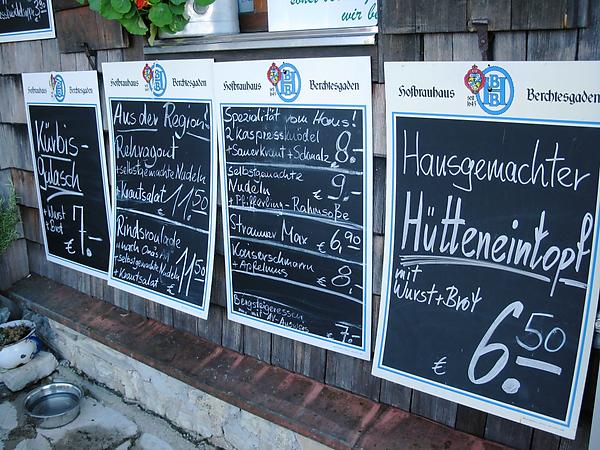 wir b
Hofbrauhaus Berchtesgaden
Kürbis-
Gulasch
+ Wurst
+ Brot
€ 7.-
Hofbrauhaus Berchtesgaden
Aus der Region
Rehragout
+ selbstgemachte Nudeln
+ Krautsalat 11,50
Rindsroulade
nach Oma's Art
+ selbstgemachte Nudeln
+ Krautsalat 11,50
Hofbrauhaus Berchtesgaden
seit 1645
Spezialität vom Haus!
2 Kaspressknödel
+ Sauerkraut + Schmalz 8.-
Selbstgemachte
Nudeln
+ Pfifferling-Rahmsoße € 9,-
Strammer Max € 6,90
Kaiserschmarrn
+ Apfelmus € 8,-
Bergsteigeressen
nur mit AV-Ausweis € 7.-
Hofbrauhaus Berchtesgaden
seit 1645
HB
Hausgemachter
Hütteneintopf
mit
Wurst + Brot
€ 6.50